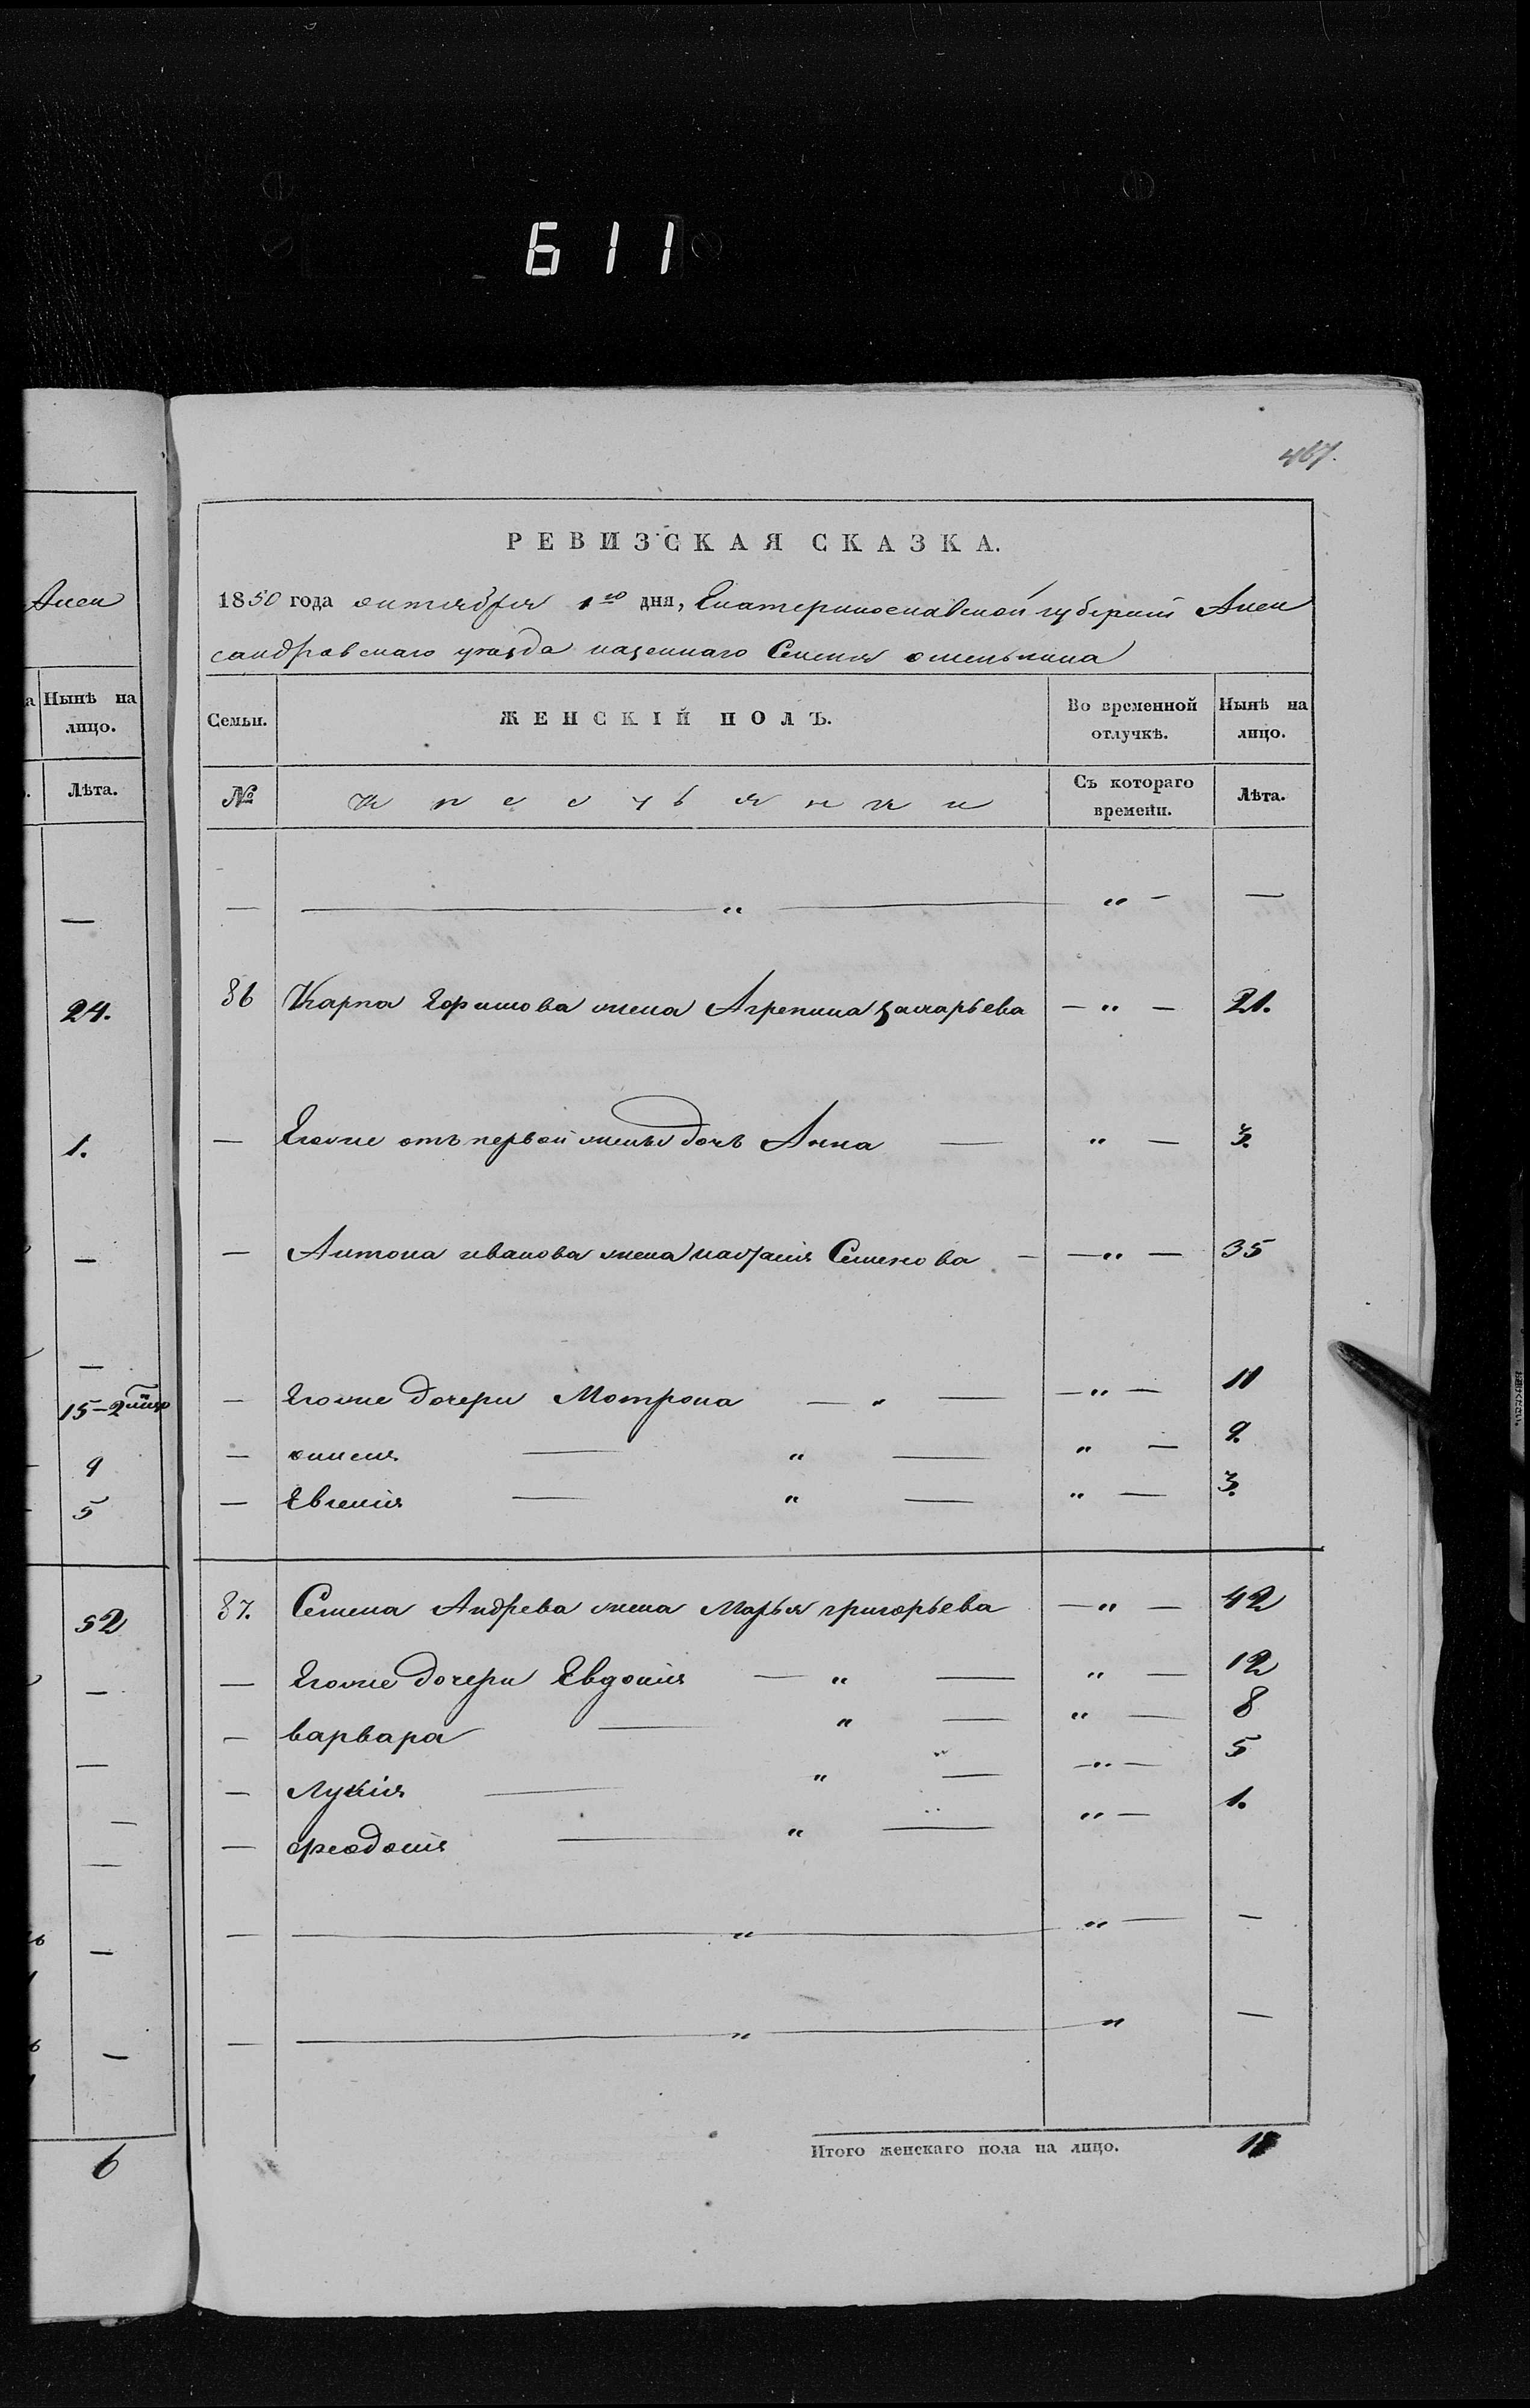 611
467.
Алек
Нынѣ на
лицо.
Лѣта.
—
24.
1.
—
—
15-2
9
5
52
—
—
—
—
—
—
6
РЕВИЗСКАЯ СКАЗКА.
1850 года октября 1го дня, Екатеринославской губерніи Алек
сандровскаго уезда казеннаго Селенія оменьника
Семьи. ЖЕНСКІЙ ПОЛЪ. Во временной отлучкѣ. Нынѣ на лицо.
№ Крестьянки Съ котораго времени. Лѣта.
— — „ — „ — —
86 Карпа Ефимова жена Агрепина захарьева — „ — 21.
— Егоже отъ первой жены дочь Анна — „ — 3.
— Антона иванова жена наталія Семенова — — „ — 35
— Егоже дочери Мотрона — „ — — „ — 11
— — „ — „ — 9.
— Евгенія — „ — „ — 3.
87. Семена Андрева жена Марья григорьева — „ — 42
— Егоже дочери Евдокія — „ — „ — 12
— варвара — „ — „ — 8
— Лукія — „ — — „ — 5
— феодосія — „ — „ — 1.
— — „ — „ — —
— — „ — „ —
Итого женскаго пола на лицо. 11